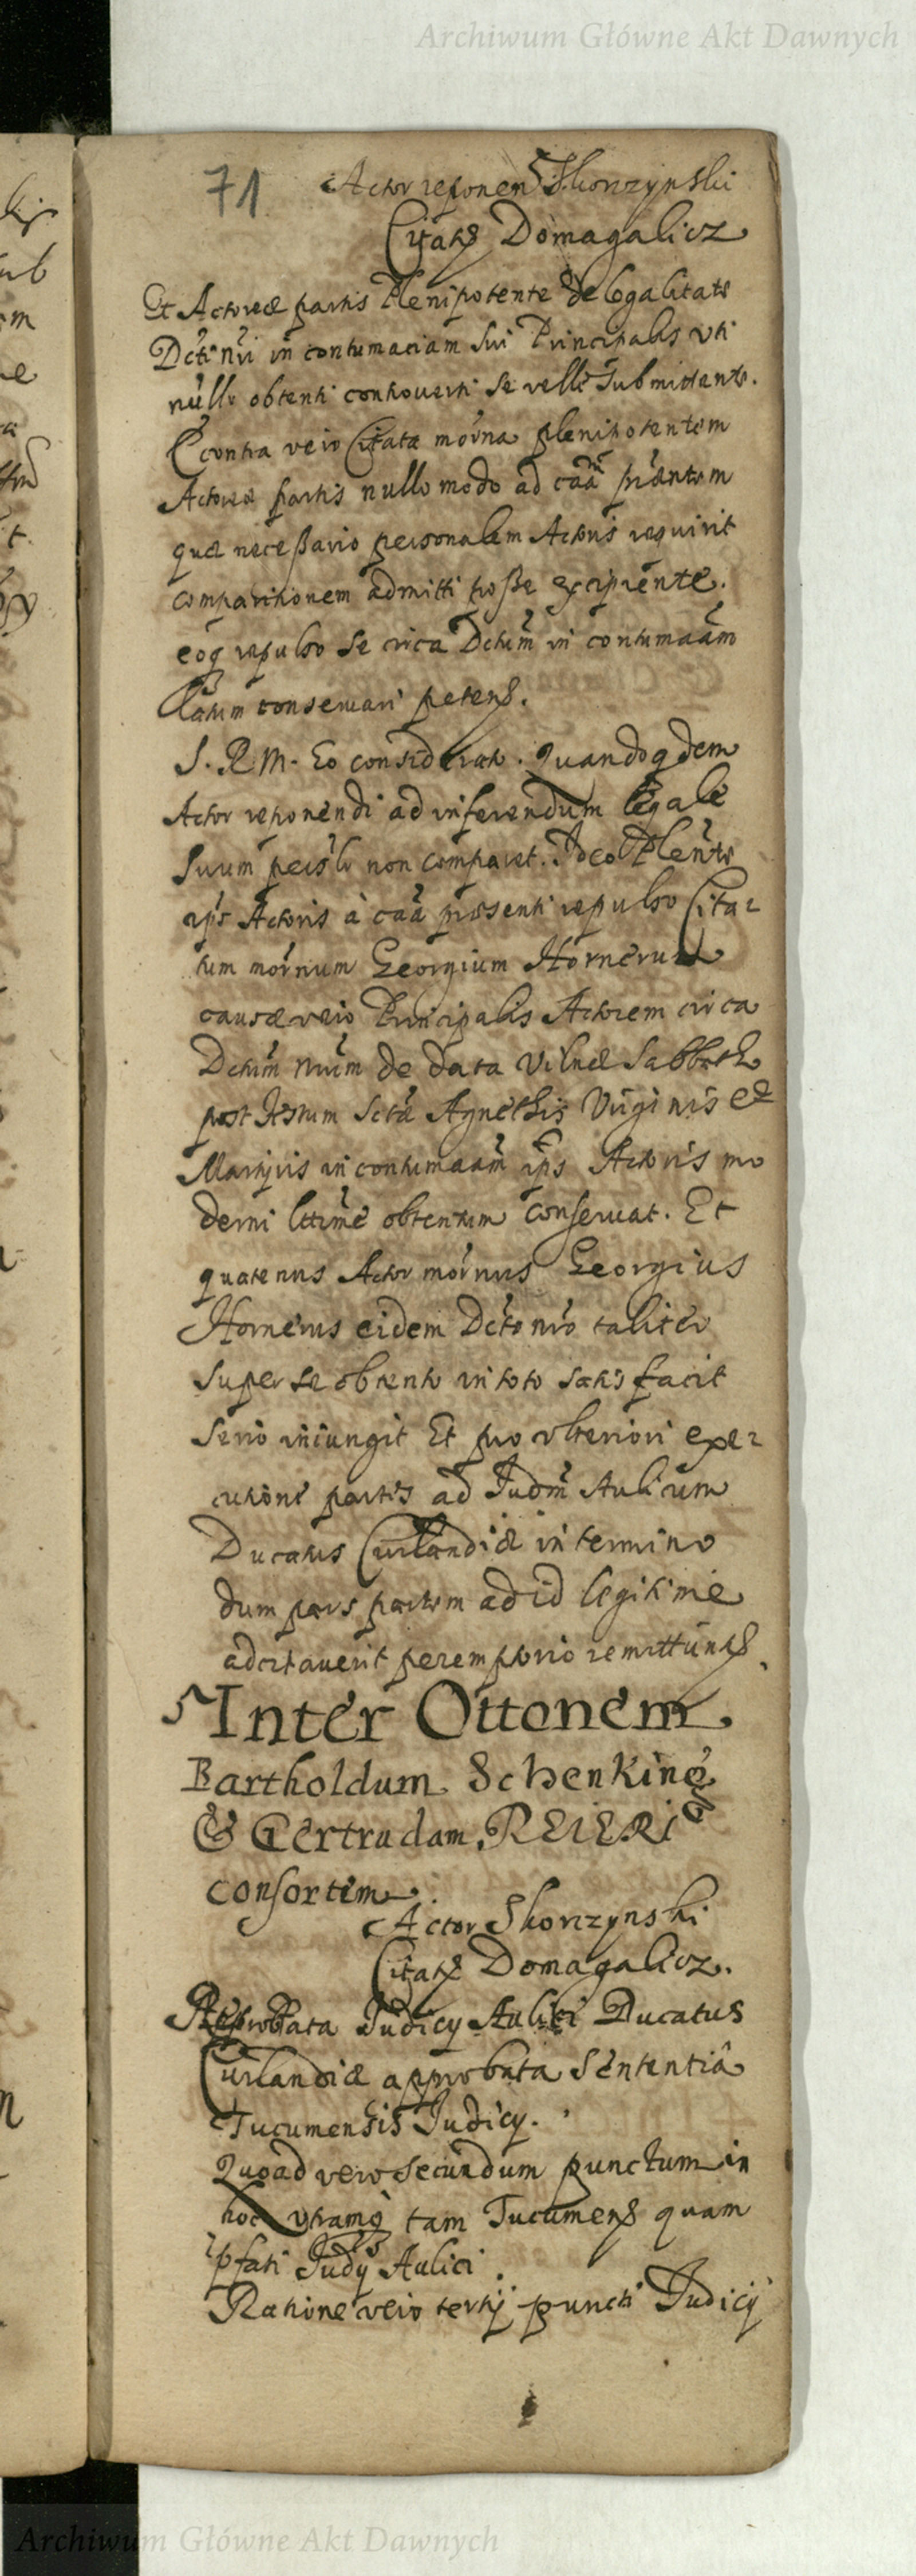 Archiwum Główne Akt Dawnych
71
Actor reponen Skorzynski
Citatg Domagalicz
Et Actoreæ partis Plenipotente de legalitate
Dcti nri in contumaciam sui Principalis uti
nulle obtenti controuerti se velle Submittente.
E contra vero Citatæ morna plenipotentem
Actoreæ partis nullo modo ad caam præntem
quæ necessario personalem Actoris requirit
comparitionem admitti posse excipiente.
eoq repulso se circa Dctum in contumaam
latum conseruari petens.
S. R. M. Eo considerato. Quandoqdem
Actor reponendi ad inferendum legale
suum persolr non comparet. Ideo Plente
ips Actoris à caa præsenti repulso Cita-
tum mornum Georgium Hornerum
causæ vero Principalis Actorem circa
Dctum nrum de data Vilnæ Sabbatho
post Festum Sctæ Agnethis Virginis &
Martyris in contumaam ips Actoris mo
derni lttime obtentum conseruat. Et
quatenus Actor mornus Georgius
Hornerus eidem Dcto nro taliter
super se obtento in toto satisfaciat
serio iniungit Et pro ulteriori exe-
cutione partes ad Judm Aulicum
Ducatus Curlandiæ in termino
dum pars partem ad id legitime
adcitauerit peremptorio remittuntg.
Inter Ottonem
Bartholdum Schenking
& Gertrudam REIERI
consortem
Actor Skorzynski
Citatg Domagalicz.
Judicy Aulici Ducatus
Curlandiæ approbata Sententiâ
Tucumensis Judicy.
Quoad vero secundum punctum in
hoc utramq tam Tucumens quam
pfati Judy Aulici.
Ratione vero tertij puncti Judicij
Archiwum Główne Akt Dawnych